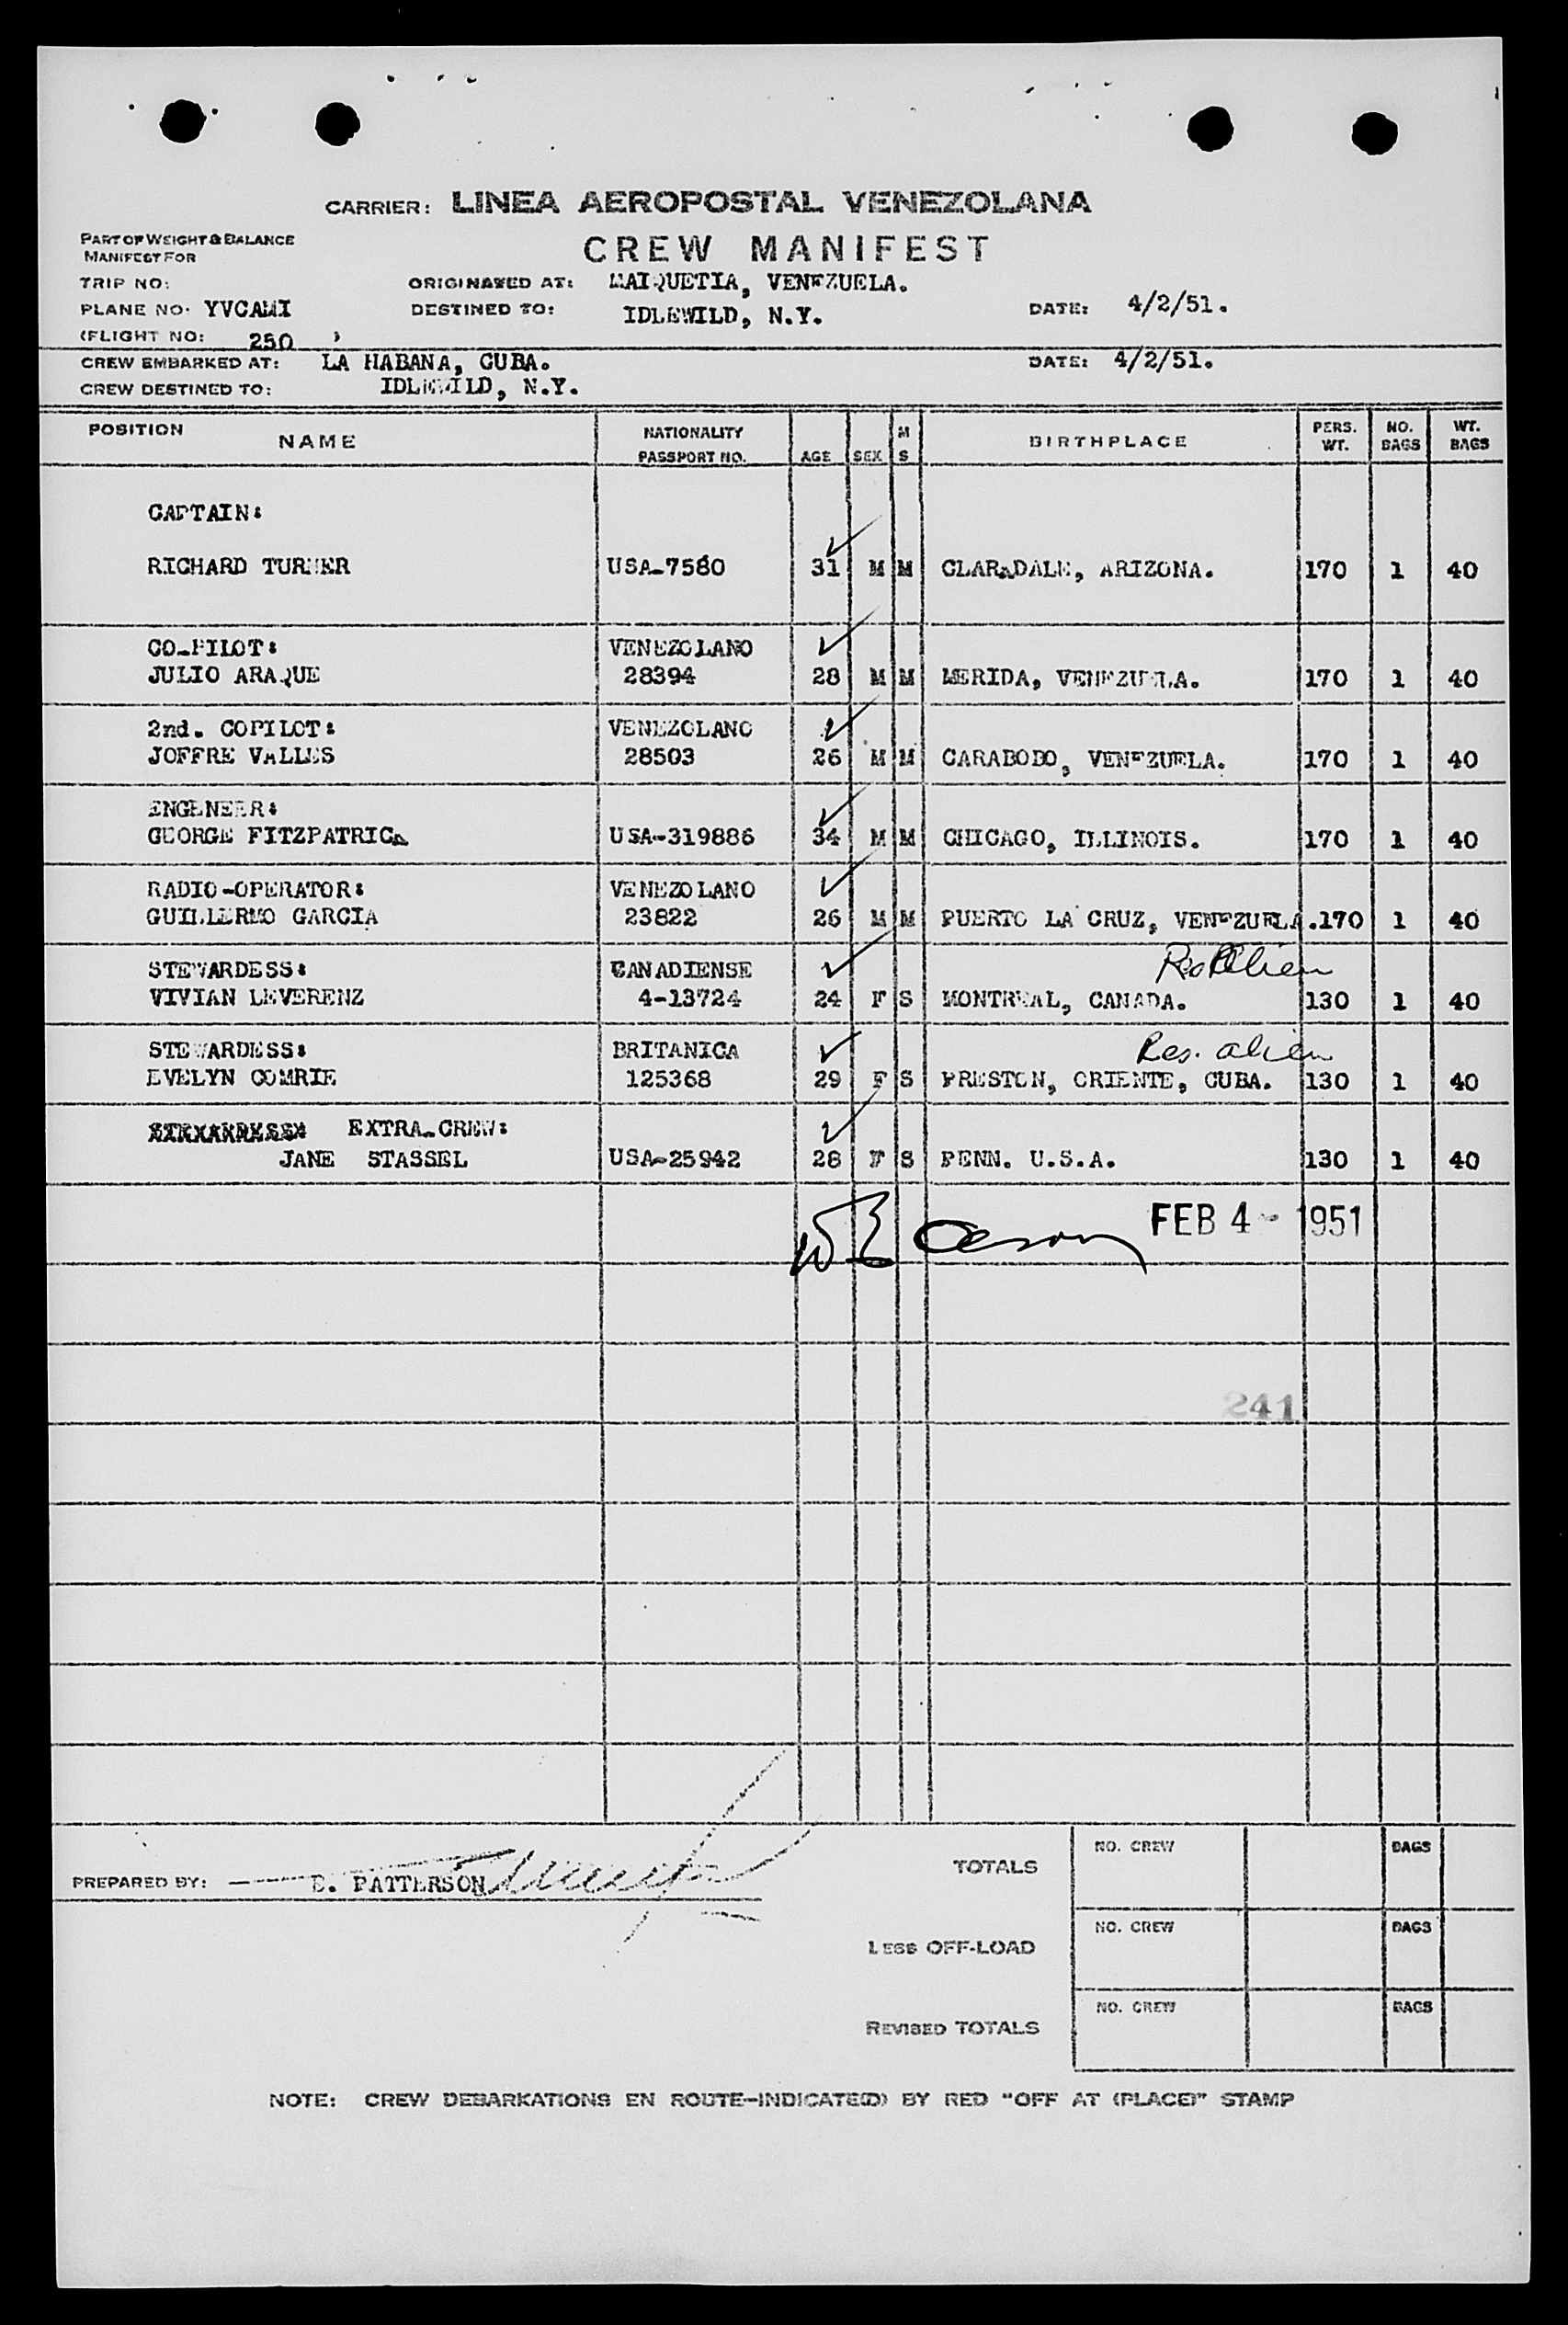 CARRIER: LINEA AEROPOSTAL VENEZOLANA
PART OF WEIGHT & BALANCE
MANIFEST FOR
CREW MANIFEST
TRIP NO:
ORIGINATED AT: MAIQUETIA, VENEZUELA.
PLANE NO. YVCAMI
DESTINED TO: IDLEWILD, N.Y.
DATE: 4/2/51.
(FLIGHT NO: 250 )
CREW EMBARKED AT: LA HABANA, CUBA.
DATE: 4/2/51.
CREW DESTINED TO: IDLEWILD, N.Y.
POSITION NAME NATIONALITY PASSPORT NO. AGE SEX M S BIRTHPLACE PERS. WT. NO. BAGS WT. BAGS
CAPTAIN:
RICHARD TURNER USA-7580 31 M M ARIZONA. 170 1 40
CO-PILOT: VENEZOLANO
JULIO ARAQUE 28394 28 M M MERIDA, VENEZUELA. 170 1 40
2nd. COPILOT: VENEZOLANO
JOFFRE VALLES 28503 26 M M CARABOBO, VENEZUELA. 170 1 40
ENGENEER:
GEORGE FITZPATRICK USA-319886 34 M M CHICAGO, ILLINOIS. 170 1 40
RADIO-OPERATOR: VENEZOLANO
GUILLERMO GARCIA 23822 26 M M PUERTO LA CRUZ, VENEZUELA. 170 1 40
STEWARDESS: CANADIENSE Res Alien
VIVIAN LEVERENZ 4-13724 24 F S MONTREAL, CANADA. 130 1 40
STEWARDESS: BRITANICA Res. alien
EVELYN COMRIE 125368 29 F S PRESTON, ORIENTE, CUBA. 130 1 40
EXTRA-CREW:
JANE STASSEL USA-25942 28 F S PENN. U.S.A. 130 1 40
FEB 4 - 1951
241
PREPARED BY: PATTERSON
TOTALS NO. CREW BAGS
LESS OFF-LOAD NO. CREW BAGS
REVISED TOTALS NO. CREW BAGS
NOTE: CREW DEBARKATIONS EN ROUTE-INDICATE(D) BY RED "OFF AT (PLACE)" STAMP